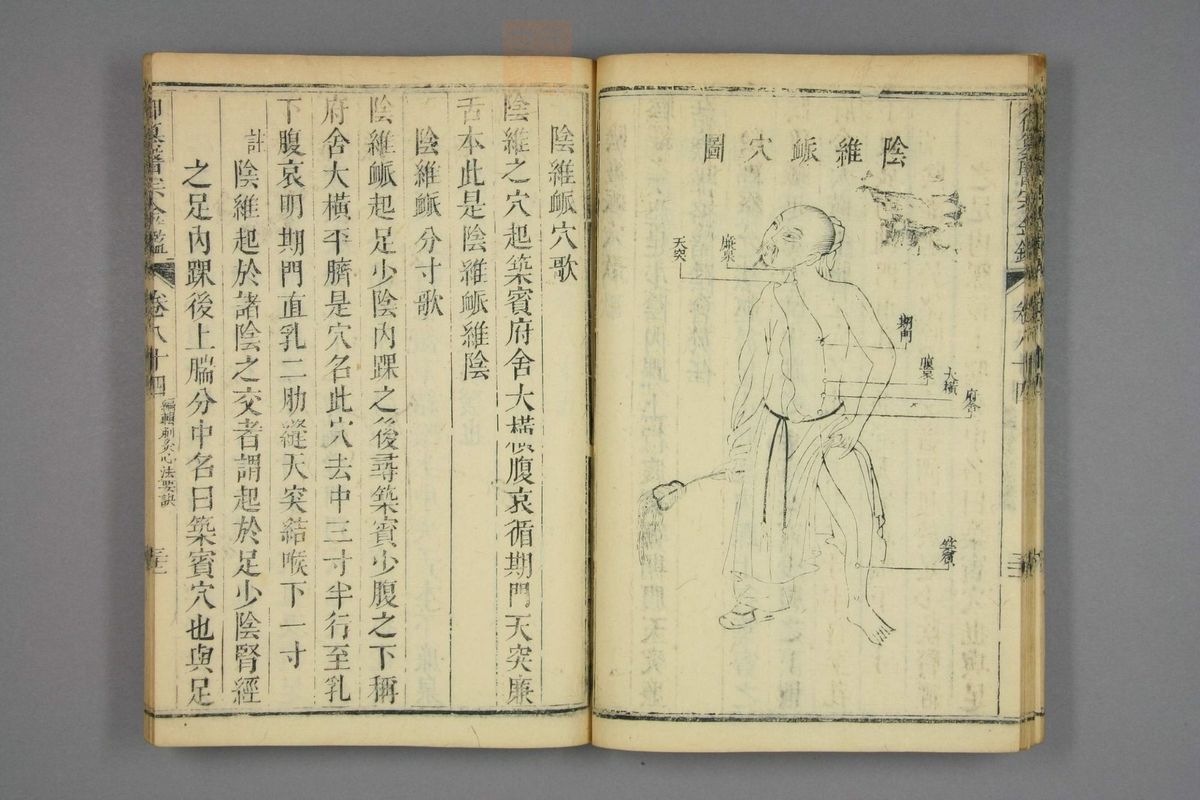 陰維衇穴圖
廉泉
天突
期門
大橫
府舍
築賓
陰維衇穴歌
陰維之穴起築賓府舍大橫腹哀循期門天突廉
舌本此是陰維衇維陰
陰維衇分寸歌
陰維衇起足少陰內踝之後尋築賓少腹之下稱
府舍大橫平臍是穴名此穴去中三寸半行至乳
下腹哀明期門直乳二肋縫天突結喉下一寸
註陰維起於諸陰之交者謂起於足少陰腎經
之足內踝後上腨分中名曰築賓穴也與足
卷八十四
編輯刺灸心法要訣